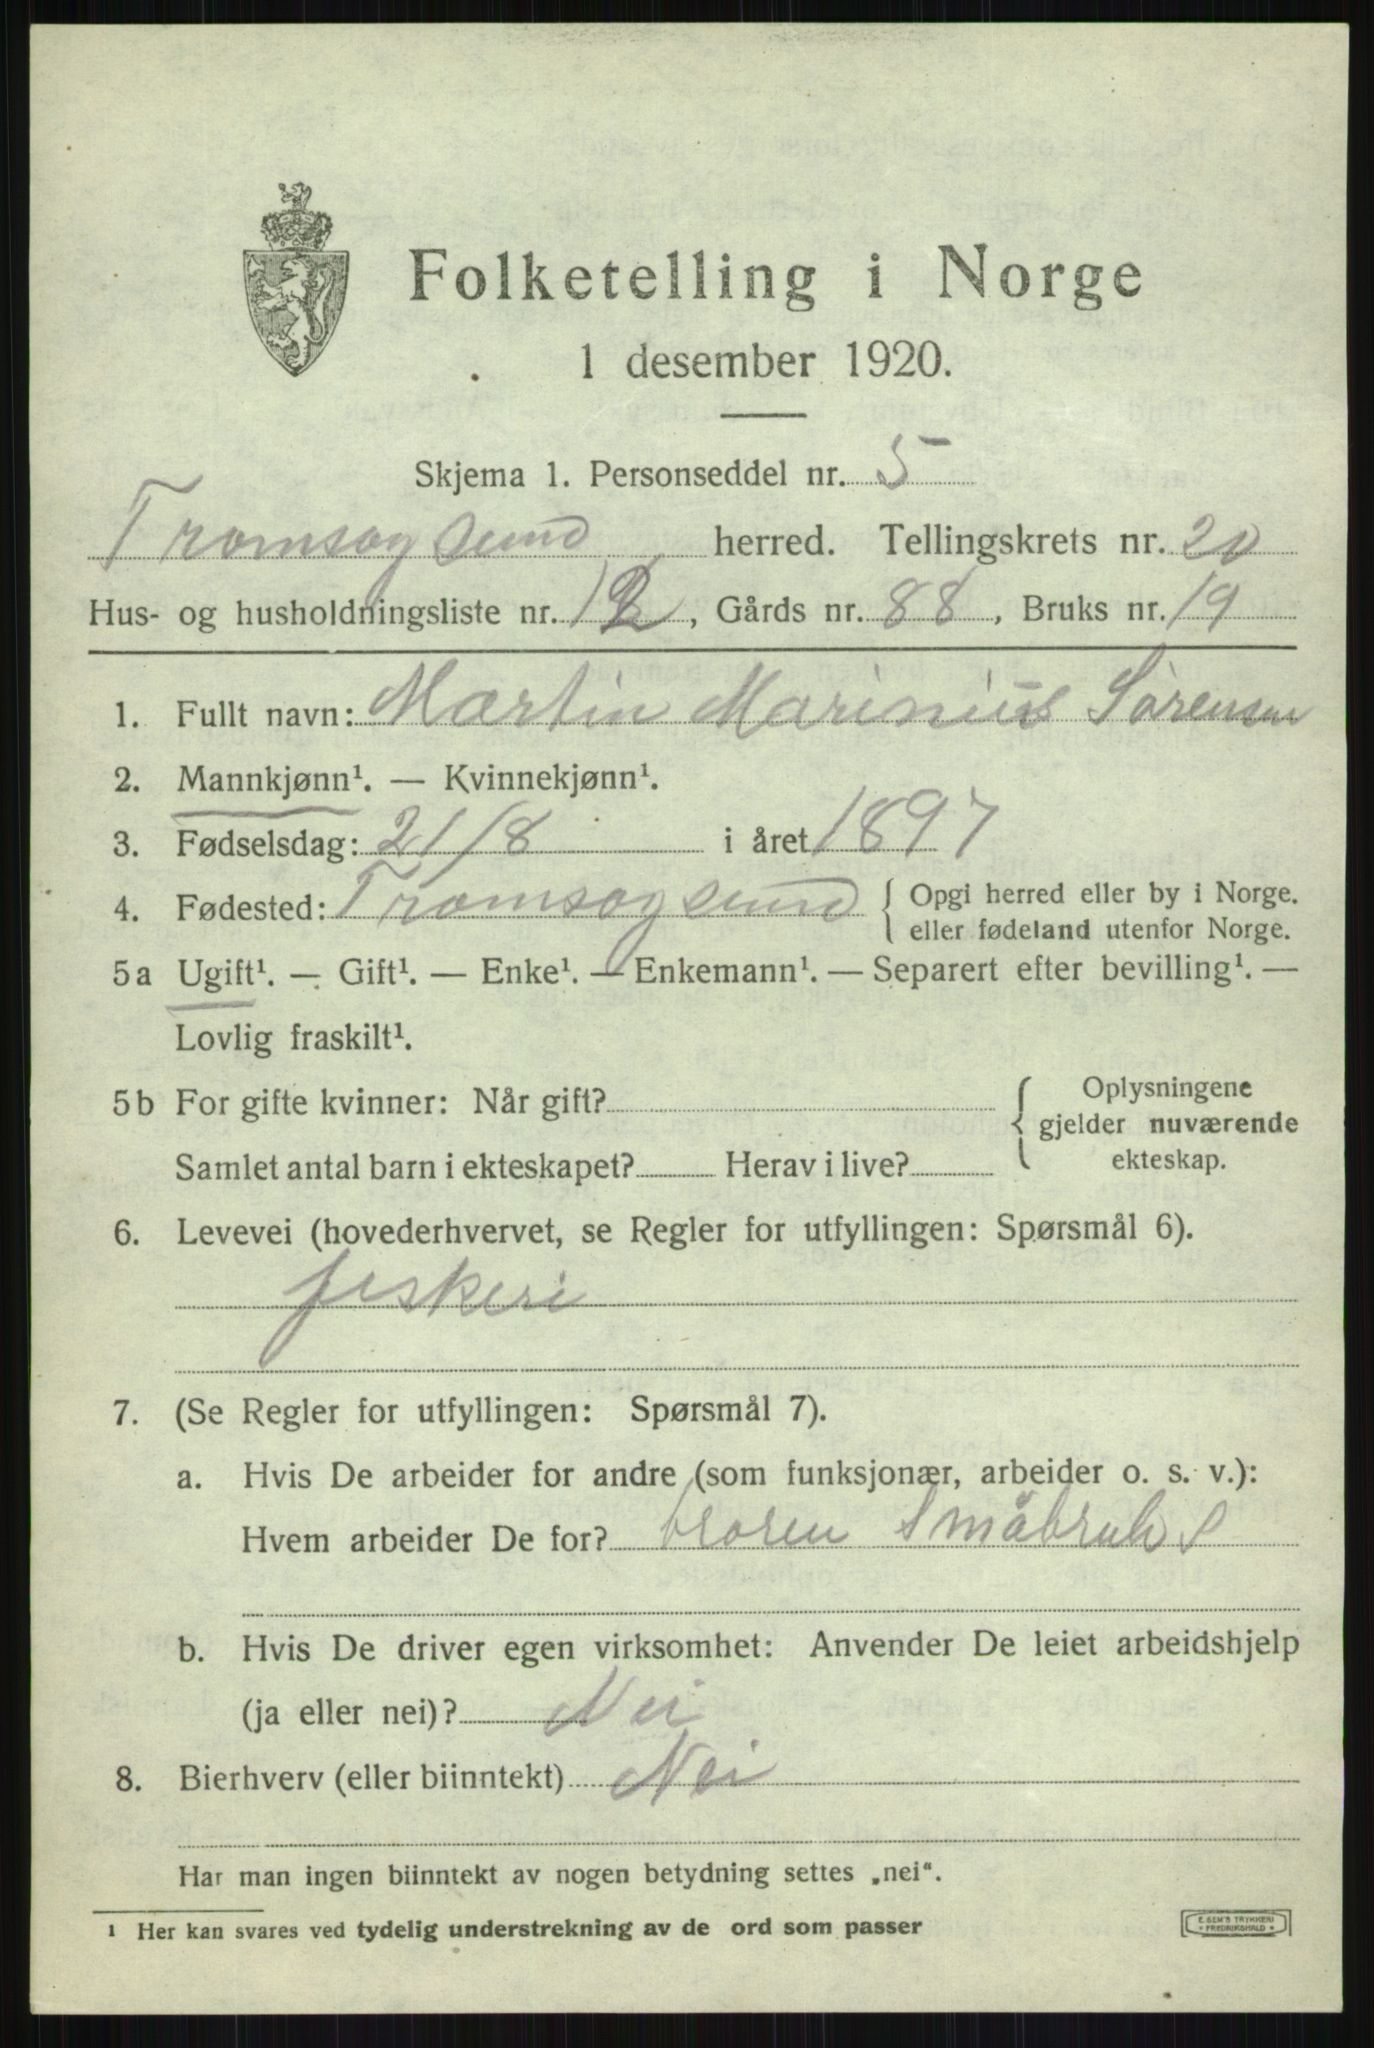 Folketelling i Norge
1 desember 1920.
Skjema 1. Personseddel nr. 5
Tromsøysund herred. Tellingskrets nr. 20
Hus- og husholdningsliste nr. 12, Gårds nr. 88, Bruks nr. 19
1. Fullt navn: Martin Marinius Sørensen
2. Mannkjønn¹. — Kvinnekjønn¹.
3. Fødselsdag: 21/8 i året 1897
4. Fødested: Tromsøysund { Opgi herred eller by i Norge.
eller fødeland utenfor Norge.
5a Ugift¹. — Gift¹. — Enke¹. — Enkemann¹. — Separert efter bevilling¹. —
Lovlig fraskilt¹.
5b For gifte kvinner: Når gift? { Oplysningene
gjelder nuværende
Samlet antal barn i ekteskapet? Herav i live? ekteskap.
6. Levevei (hovederhvervet, se Regler for utfyllingen: Spørsmål 6).
fiskeri
7. (Se Regler for utfyllingen: Spørsmål 7).
a. Hvis De arbeider for andre (som funksjonær, arbeider o. s. v.):
Hvem arbeider De for? broren Småbruk
b. Hvis De driver egen virksomhet: Anvender De leiet arbeidshjelp
(ja eller nei)? Nei
8. Bierhverv (eller biinntekt) Nei
Har man ingen biinntekt av nogen betydning settes „nei".
1 Her kan svares ved tydelig understrekning av de ord som passer
E. SEM'S TRYKKERI
FREDRIKSHALD